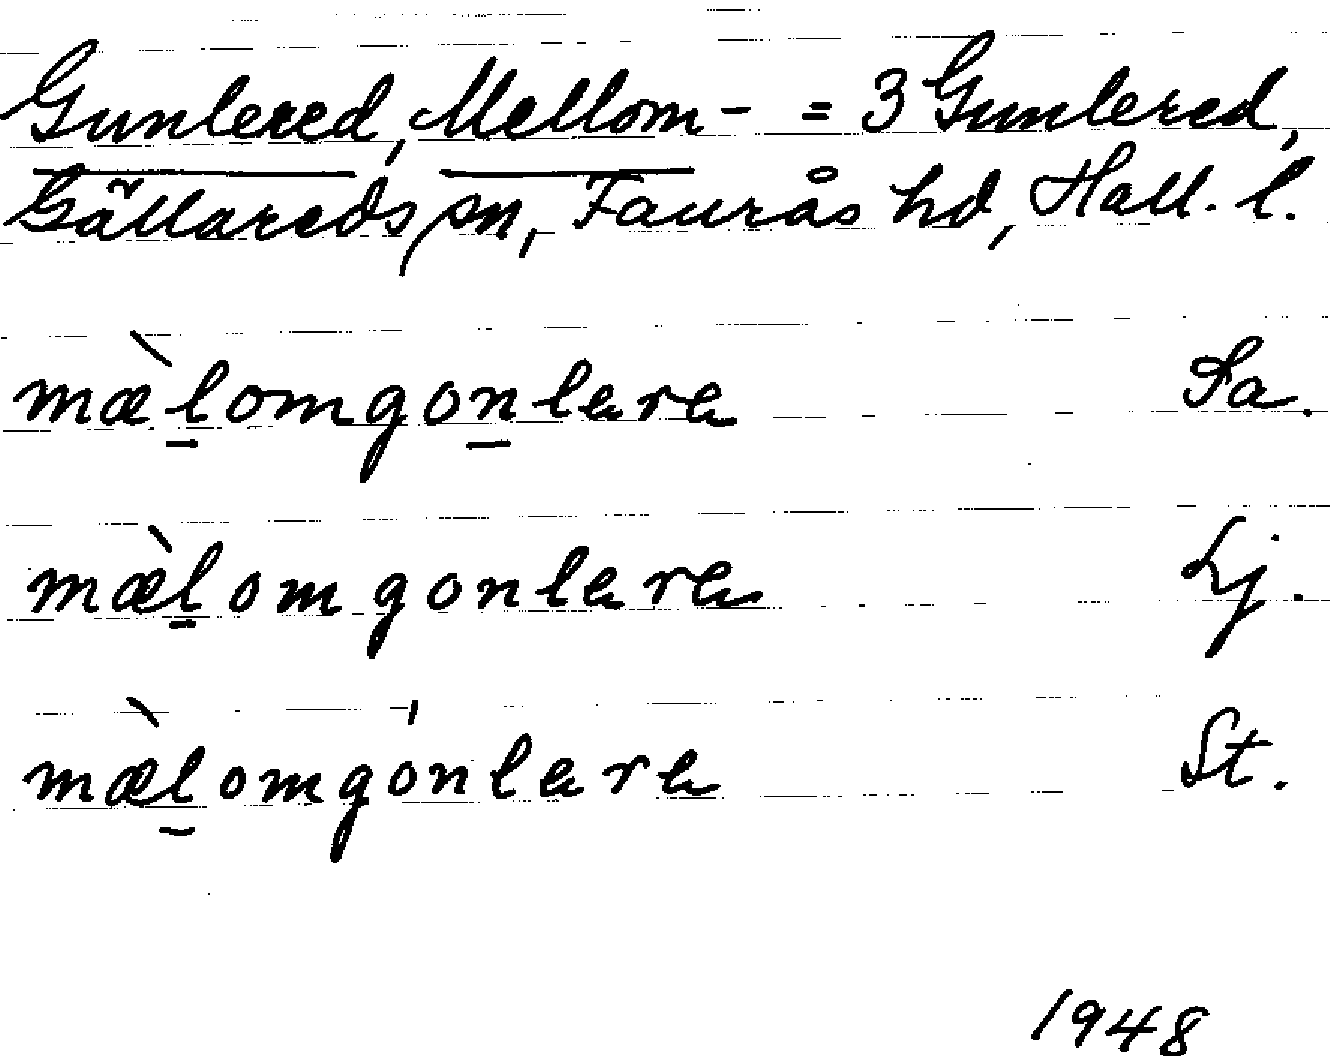 Gunlered, Mellom- = 3 Gunlered,
Gällareds sn, Faurås hd, Hall. l.
mæ̀l̲omgon̲lera Sa.
mæ̀l̲omgonlera Lj.
mæ̀l̲omgo̍nlera St.
1948